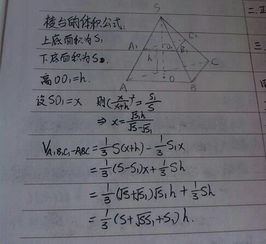 棱台的体积公式
上底面积为S₁
下底面积为S
高OO₁=h.
设SO₁=x 则(x/(x+h))²=S₁/S
⇒ x=√S₁h/(√S-√S₁)
V_A₁B₁C₁-ABC=1/3 S(x+h)-1/3 S₁x
=1/3 (S-S₁)x+1/3 Sh
=1/3 (√S+√S₁)√S₁h+1/3 Sh
=1/3 (S+√SS₁+S₁)h.
S
A₁
B₁
C
h
O
A
B